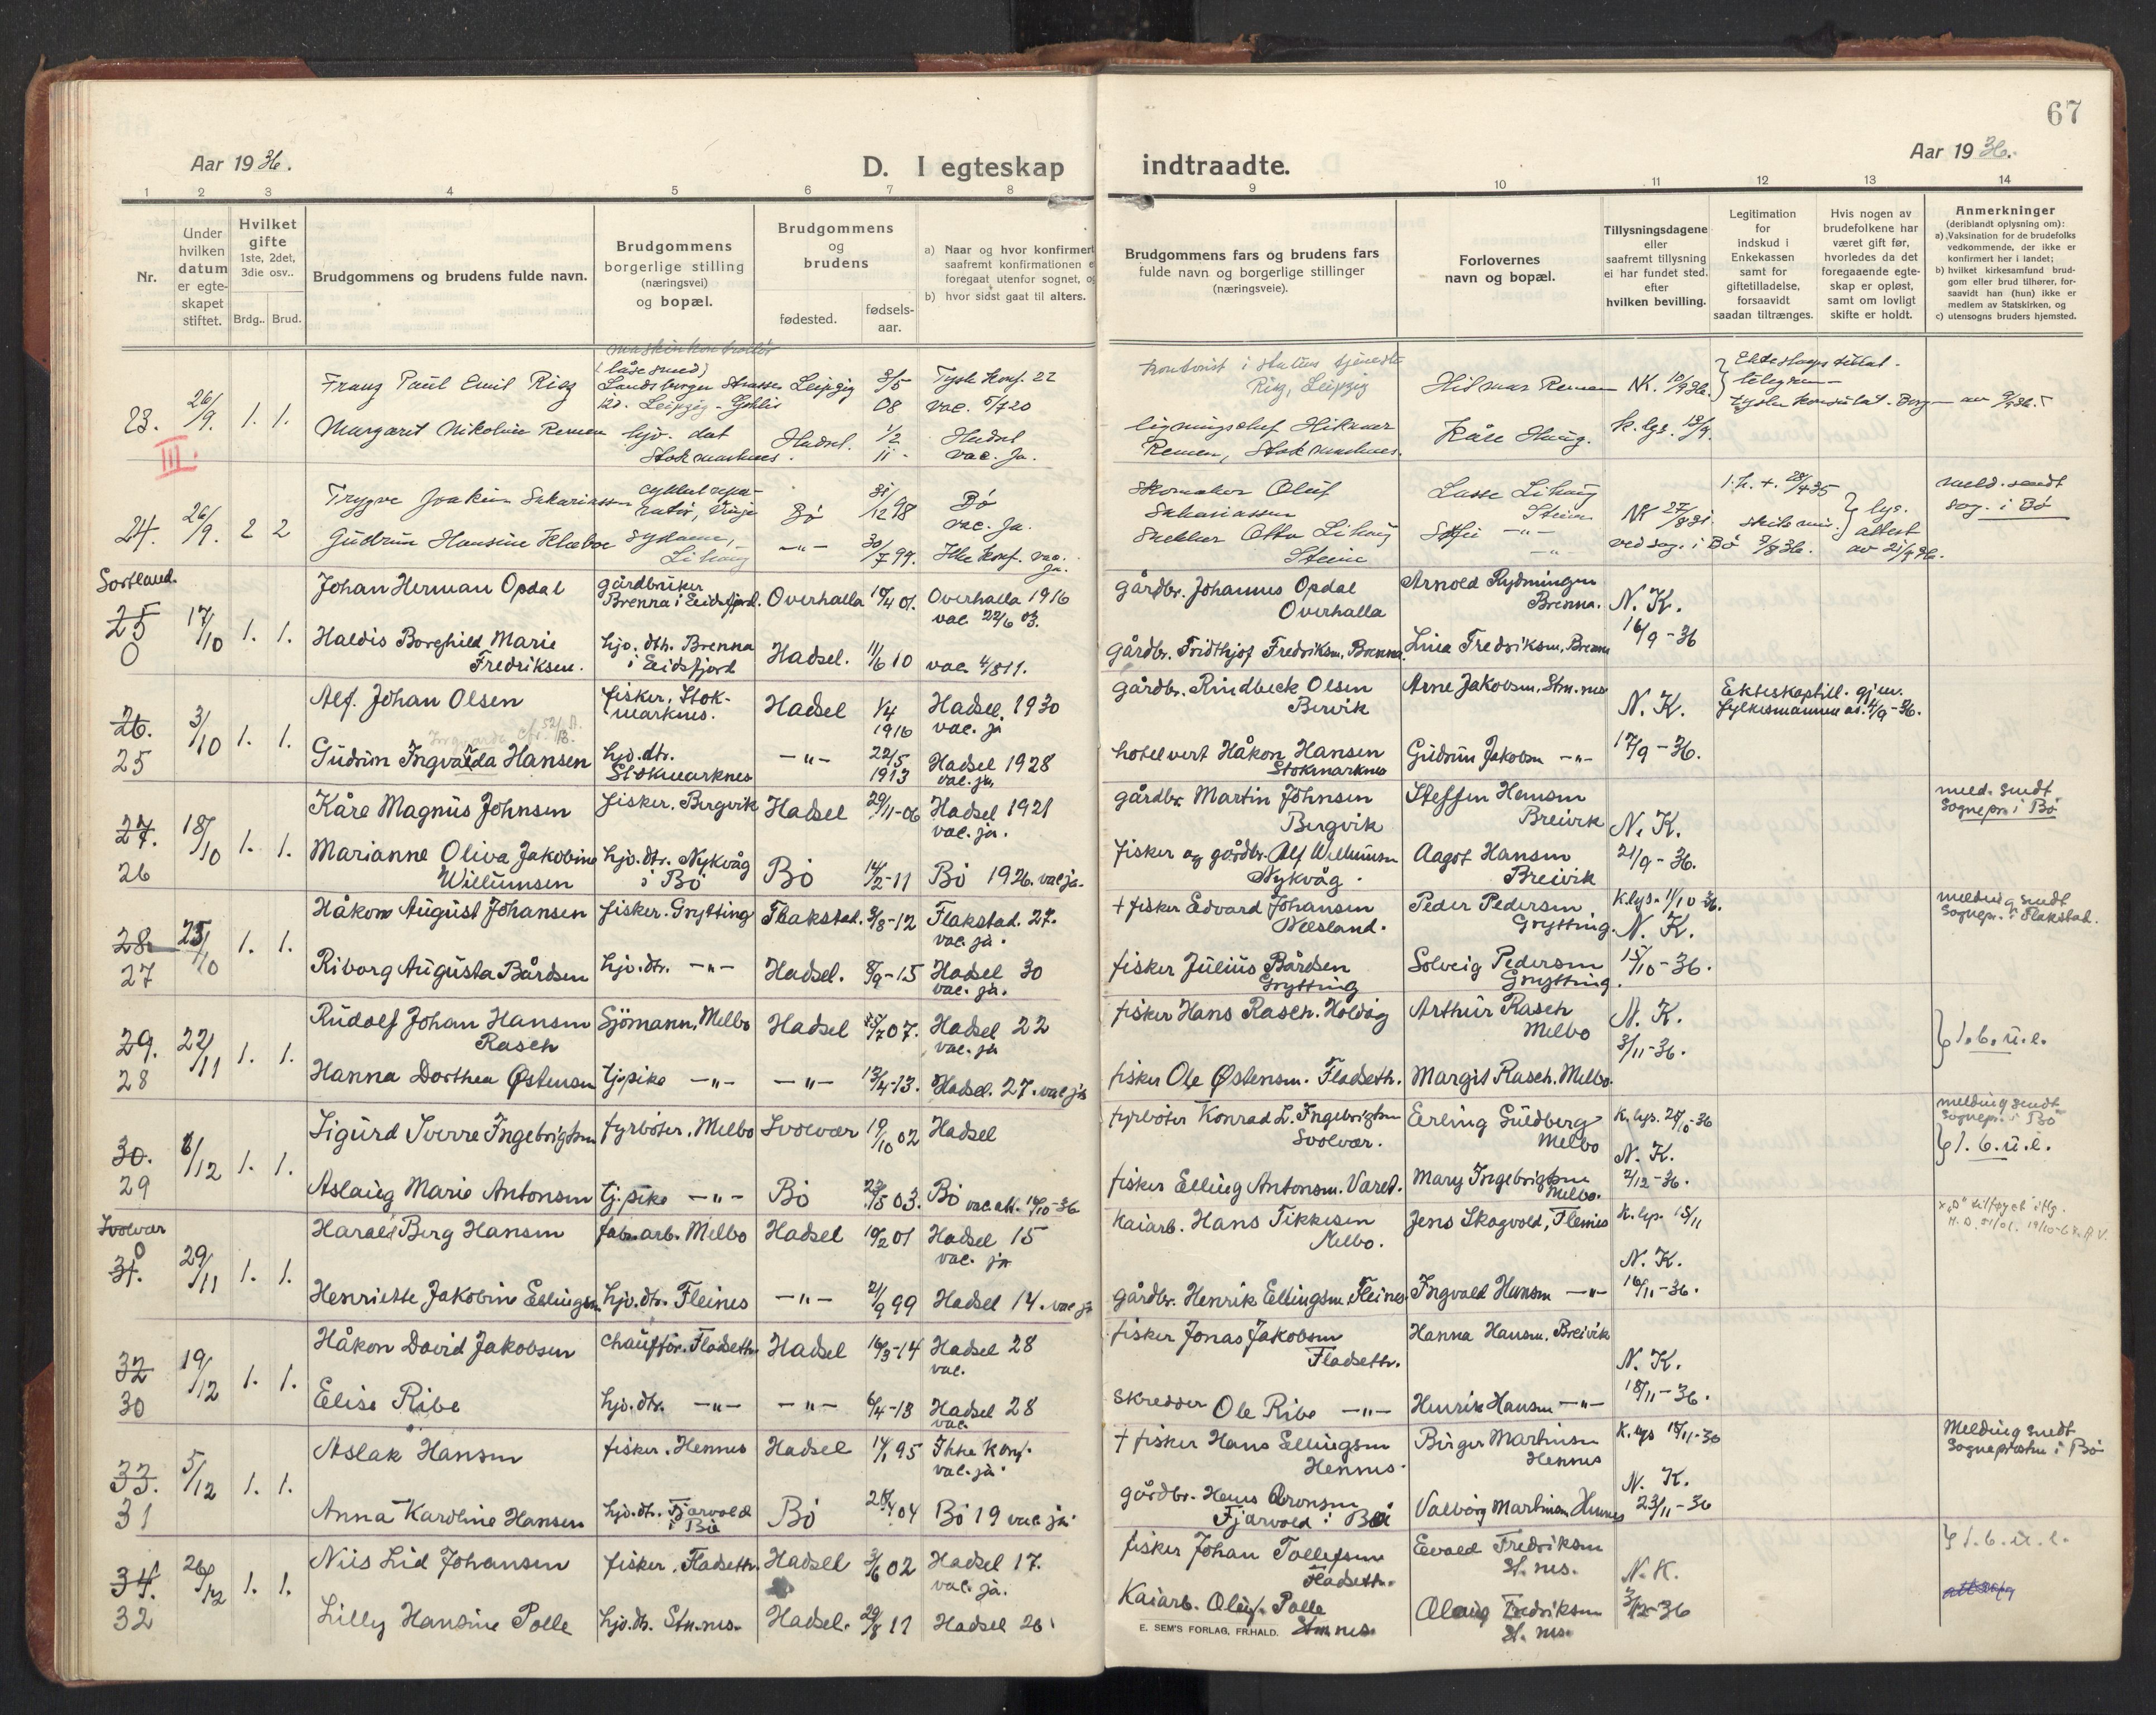 67
Aar 1936.
D. I egteskap indtraadte.
Aar 1936.
1 2 3 4 5 6 7 8 9 10 11 12 13 14
Nr.
Under hvilken datum er egteskapet stiftet.
Hvilket gifte 1ste, 2det, 3die osv..
Brdg.. Brud.
Brudgommens og brudens fulde navn.
Brudgommens borgerlige stilling (næringsvei) og bopæl.
Brudgommens og brudens
fødested.
fødsels-aar.
a) Naar og hvor konfirmert
saafremt konfirmationen e
foregaat utenfor sognet, og
b) hvor sidst gaat til alters.
Brudgommens fars og brudens fars
fulde navn og borgerlige stillinger
(næringsveie).
Forlovernes
navn og bopæl.
Tillysningsdagene
eller
saafremt tillysning
ei har fundet sted.
efter
hvilken bevilling.
Legitimation
for
indskud i
Enkekassen
samt for
giftetilladelse,
forsaavidt
saadan tiltrænges.
Hvis nogen av
brudefolkene har
været gift før,
hvorledes da det
foregaaende egte-
skap er opløst,
samt om lovligt
skifte er holdt.
Anmerkninger
(deriblandt oplysning om):
a) Vaksination for de brudefolks
vedkommende, der ikke er
konfirmert her i landet;
b) hvilket kirkesamfund brud-
gom eller brud tilhører, for-
saavidt han (hun) ikke er
medlem av Statskirken, og
c) utensogns bruders hjemsted.
23. 26/9. 1. 1.
III.
Franz Paul Emil Risz
maskinkontrollør
(låsesmed)
Landsberger Strasse
120. Leipzig-Gohlis
Leipzig 3/5 08
Tysk konf. 22
Risz, Leipzig
Hilmar Remen NK. 10/9 36.
telegram
Margaret Nikoline Remen
hjv. dat
Stokmarknes.
Hadsel. 1/2 11.
Hadsel
vac. ja.
Hilmar
Remen, Stokmarknes.
Kåre Haug. k. lys. 12/9.
24. 26/9. 2 2
Trygve Joakim Sakariassen
Bö 31/12 98
Bö
vac. ja.
Skomaker Oluf
Sakariassen
Lasse Lihaug
Steine
NK 27/8 36.
meld. sendt
sog. i Bö
Gudrun Hansine Klæboe
Lihaug
-"- 30/7 99. Ikke konf. vac. ja.
Snekker Otto Lihaug
Steine
ved sog. i Bö
lys. attest
Sortland.
25 0 17/10 1. 1.
Johan Herman Opdal
gårdbruker
Brenna i Eidsfjord.
Overhalla 19/4 01. Overhalla 1916
vac. 22/6 03.
gårdbr. Johannes Opdal
Overhalla
Arnold Rydningen
Brenna.
N. K.
16/9-36
Haldis Borghild Marie
Fredriksen.
hjv. dtr. Brenna
i Eidsfjord
Hadsel. 11/6 10 vac. 4/8 11.
gårdbr. Fridthjof Fredriksn, Brenna.
Lina Fredriksn, Brenna
26. 25 3/10 1. 1.
Alf. Johan Olsen
fisker, Stok-
marknes.
Hadsel 1/4 1916
Hadsel, 1930
vac. ja
gårdbr. Rindbeck Olsen
Arne Jakobsen, Stm.nes
N. K.
17/9-36.
Ekteskaptill. gjm.
fylkesmannen av. 4/9-36.
Gudrun Ingvalda Hansen
hjv. dtr.
Stokmarknes
-"- 22/5 1913
Hadsel 1928
vac. ja
hotelvert Håkon Hansen
Stokmarknes
Gudrun Jakobsn -"-
27. 26 18/10 1. 1.
Kåre Magnus Johnsen
fisker. Bergvik
Hadsel 29/11-06 Hadsel 1921
vac. ja.
gårdbr Martin Johnsen
Bergvik
Steffen Hansn
Breivik
N. K.
21/9-36.
meld. sendt
Sognepr. i Bö
Marianne Oliva Jakobine
Willumsen
hjv. dtr. Nykvåg
i Bö
Bö 14/2-11 Bö 1926. vac ja.
fisker og gårdbr. Alf Willumsn
Nykvåg.
Aagot Hansn
Breivik
28. 27 25/10 1. 1.
Håkon August Johansen
fisker. Grytting
Flakstad. 9/8-12 Flakstad. 27.
vac. ja.
† fisker Edvard Johansen
Peder Pedersen
Grytting.
K.lys. 11/10-36.
N. K.
15/10-36.
melding sendt
Sognepr. i Flakstad.
Riborg Augusta Bårdsen
hjv. dtr. -"-
Hadsel. 8/9-15 Hadsel 30
vac. ja.
fisker Julius Bårdsen
Grytting
Solveig Pedersn
Grytting.
29. 28 22/11 1. 1.
Rudolf Johan Hansen
Rasch
Sjömann, Melbo
Hadsel 15/7 07. Hadsel 22
vac. ja
fisker Hans Rasch. Holdög
Arthur Rasch
Melbo
N. K.
3/11-36.
} 1. b. u. l.
Hanna Dorthea Østensn
tj.pike -"- -"- 13/4-13. Hadsel. 27. vac ja
fisker Ole Østensn. Fladseth.
Margit Rasch. Melbo.
30. 29 6/12 1. 1.
Sigurd Sverre Ingebrigtsn
fyrböter, Melbo
Svolvær 19/10 02 Hadsel
fyrböter Konrad L. Ingebrigtsn
Svolvær.
Erling Guldberg
Melbo
K. lys. 25/10-36
N. K.
2/12-36.
melding sendt
Sognepr. i Bö
} 1. b. u. l.
Aslaug Marie Antonsen
tj. pike -"- Bö 23/5 03. Bö vac. att. 14/10-36
fisker Elling Antonsn. Vared.
Mary Ingebrigtsn
Melbo.
Svolvær
31. 0 29/11 1. 1.
Harald Berg Hansen
fabr. arb. Melbo
Hadsel 10/2 01 Hadsel 15
vac. ja
Kaiarb. Hans Tikkesen
Melbo.
Jens Skogvold, Fleines
K. lys. 15/11
N. K.
16/11-36.
Henriette Jakobine Ellingsn.
hjv. dtr. Fleines
-"- 2/9 99 Hadsel 14. vac ja
gårdbr. Henrik Ellingsn, Fleines.
Ingvald Hansn -"-
32 30 19/12 1. 1.
Håkon David Jakobsen
Chauffør. Fladseth
Hadsel 16/3-14 Hadsel 28
vac.
fisker Jonas Jakobsn
Fladseth.
Hanna Hansn, Breivik
N. K.
18/11-36.
Elise Ribe
hjv. dtr. -"- -"- 6/4-13 Hadsel 28
vac.
Skredder Ole Ribe -"-
Henrik Hansn -"-
33. 31 5/12 1. 1.
Aslak Hansen
fisker. Hennes
Hadsel 14/1 95 Ikke Konf.
vac. ja.
† fisker Hans Ellingsen
Hennes.
Birger Martinsen
Hennes
K. lys 15/11-36
N. K.
23/11-36
Melding sendt
Sognepresten i Bö
Anna Karoline Hansen
hjv. dtr. Fjærvold
i Bö
Bö 04 Bö 19 vac. ja.
gårdbr. Hans Aronsn
Fjærvold i Bö
Valborg Martinsn Hennes
34. 32 26/12 1. 1.
Nils Lid Johansen
fisker. Fladseth.
Hadsel 3/6 02 Hadsel 17.
vac. ja.
fisker Johan Tollefsen
Fladseth.
Edvald Fredriksn
St. nes.
N. K.
3/12-36
} 1. b. u. l.
Lilly Hansine Polle
hjv. dtr. Stm.nes.
Hadsel. 29/8 11 Hadsel 26.
Kaiarb. Oluf. Polle
Stm.nes.
Olaug Fredriksn
St. nes.
E. SEM'S FORLAG, FR.HALD.